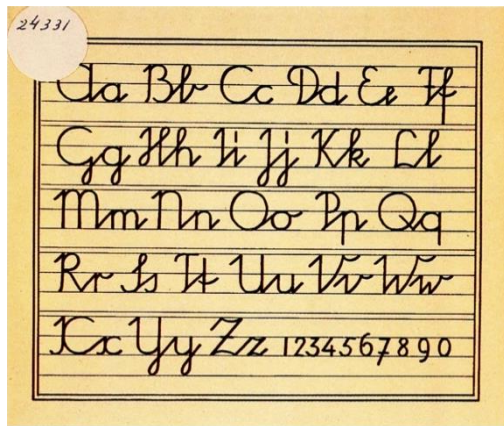 24331
Aa Bb Cc Dd Ee Ff
Gg Hh Ii Jj Kk Ll
Mm Nn Oo Pp Qq
Rr Ss Tt Uu Vv Ww
Xx Yy Zz 1234567890